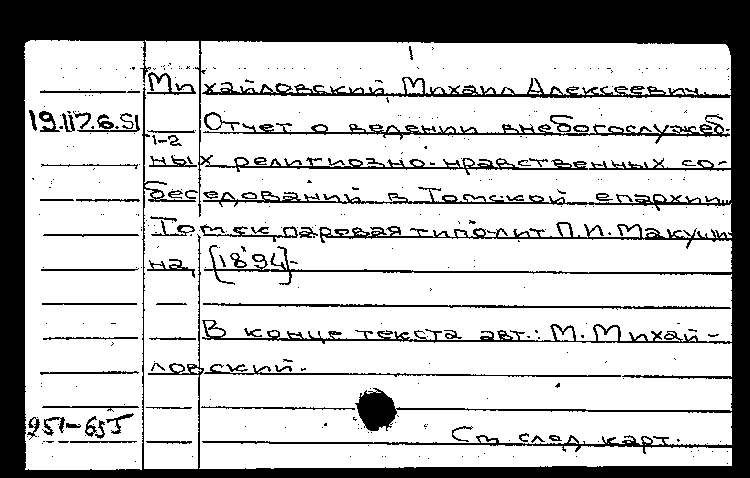 Михайловский, Михаил Алексеевич.
19.117.6.51 Отчет о ведении внебогослужеб-
1-2
ных религиозно-нравственных со-
беседований в Томской епархии.
Томск, паровая типолит. П.И. Макуши-
на, [1894].
В конце текста авт.: М. Михай-
ловский.
951-65Т
См. след. карт.